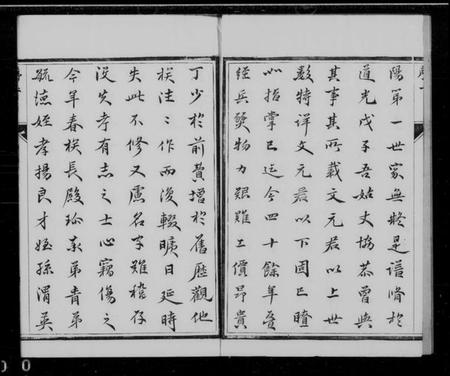 陽第一世家無疑是譜脩於
道光戊子吾姑丈協恭曾與
其事其所載文元君以上世
數特詳文元君以下固已瞭
如指掌已迄今四十餘年叠
經兵燹物力艱難工價昂貴
丁少於前費增於舊歷觀他
族往往作而復輟曠日延時
失此不修又慮名字難稽存
沒失考有志之士心竊傷之
今年春族長殿珍弟青弟
毓德姪孝揚良才姪孫渭英